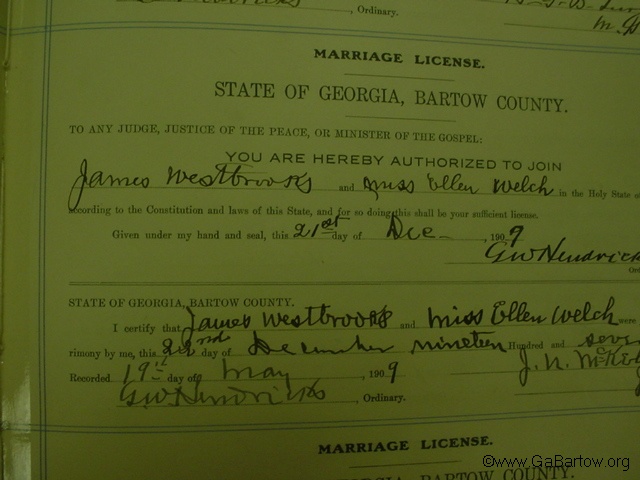 , Ordinary.
MARRIAGE LICENSE.
STATE OF GEORGIA, BARTOW COUNTY.
TO ANY JUDGE, JUSTICE OF THE PEACE, OR MINISTER OF THE GOSPEL:
YOU ARE HEREBY AUTHORIZED TO JOIN
James Westbrooks and Miss Ellen Welch in the Holy State of
according to the Constitution and laws of this State, and for so doing this shall be your sufficient license.
Given under my hand and seal, this 21st day of Dec , 1907
GW Hendrick
STATE OF GEORGIA, BARTOW COUNTY.
I certify that James Westbrooks and Miss Ellen Welch were
rimony by me, this 22nd day of December nineteen Hundred and seve
J. N. McKel
Recorded 19th day of May , 1909
GW Hendricks , Ordinary.
MARRIAGE LICENSE.
GEORGIA, BARTOW COUNTY.
©www.GaBartow.org